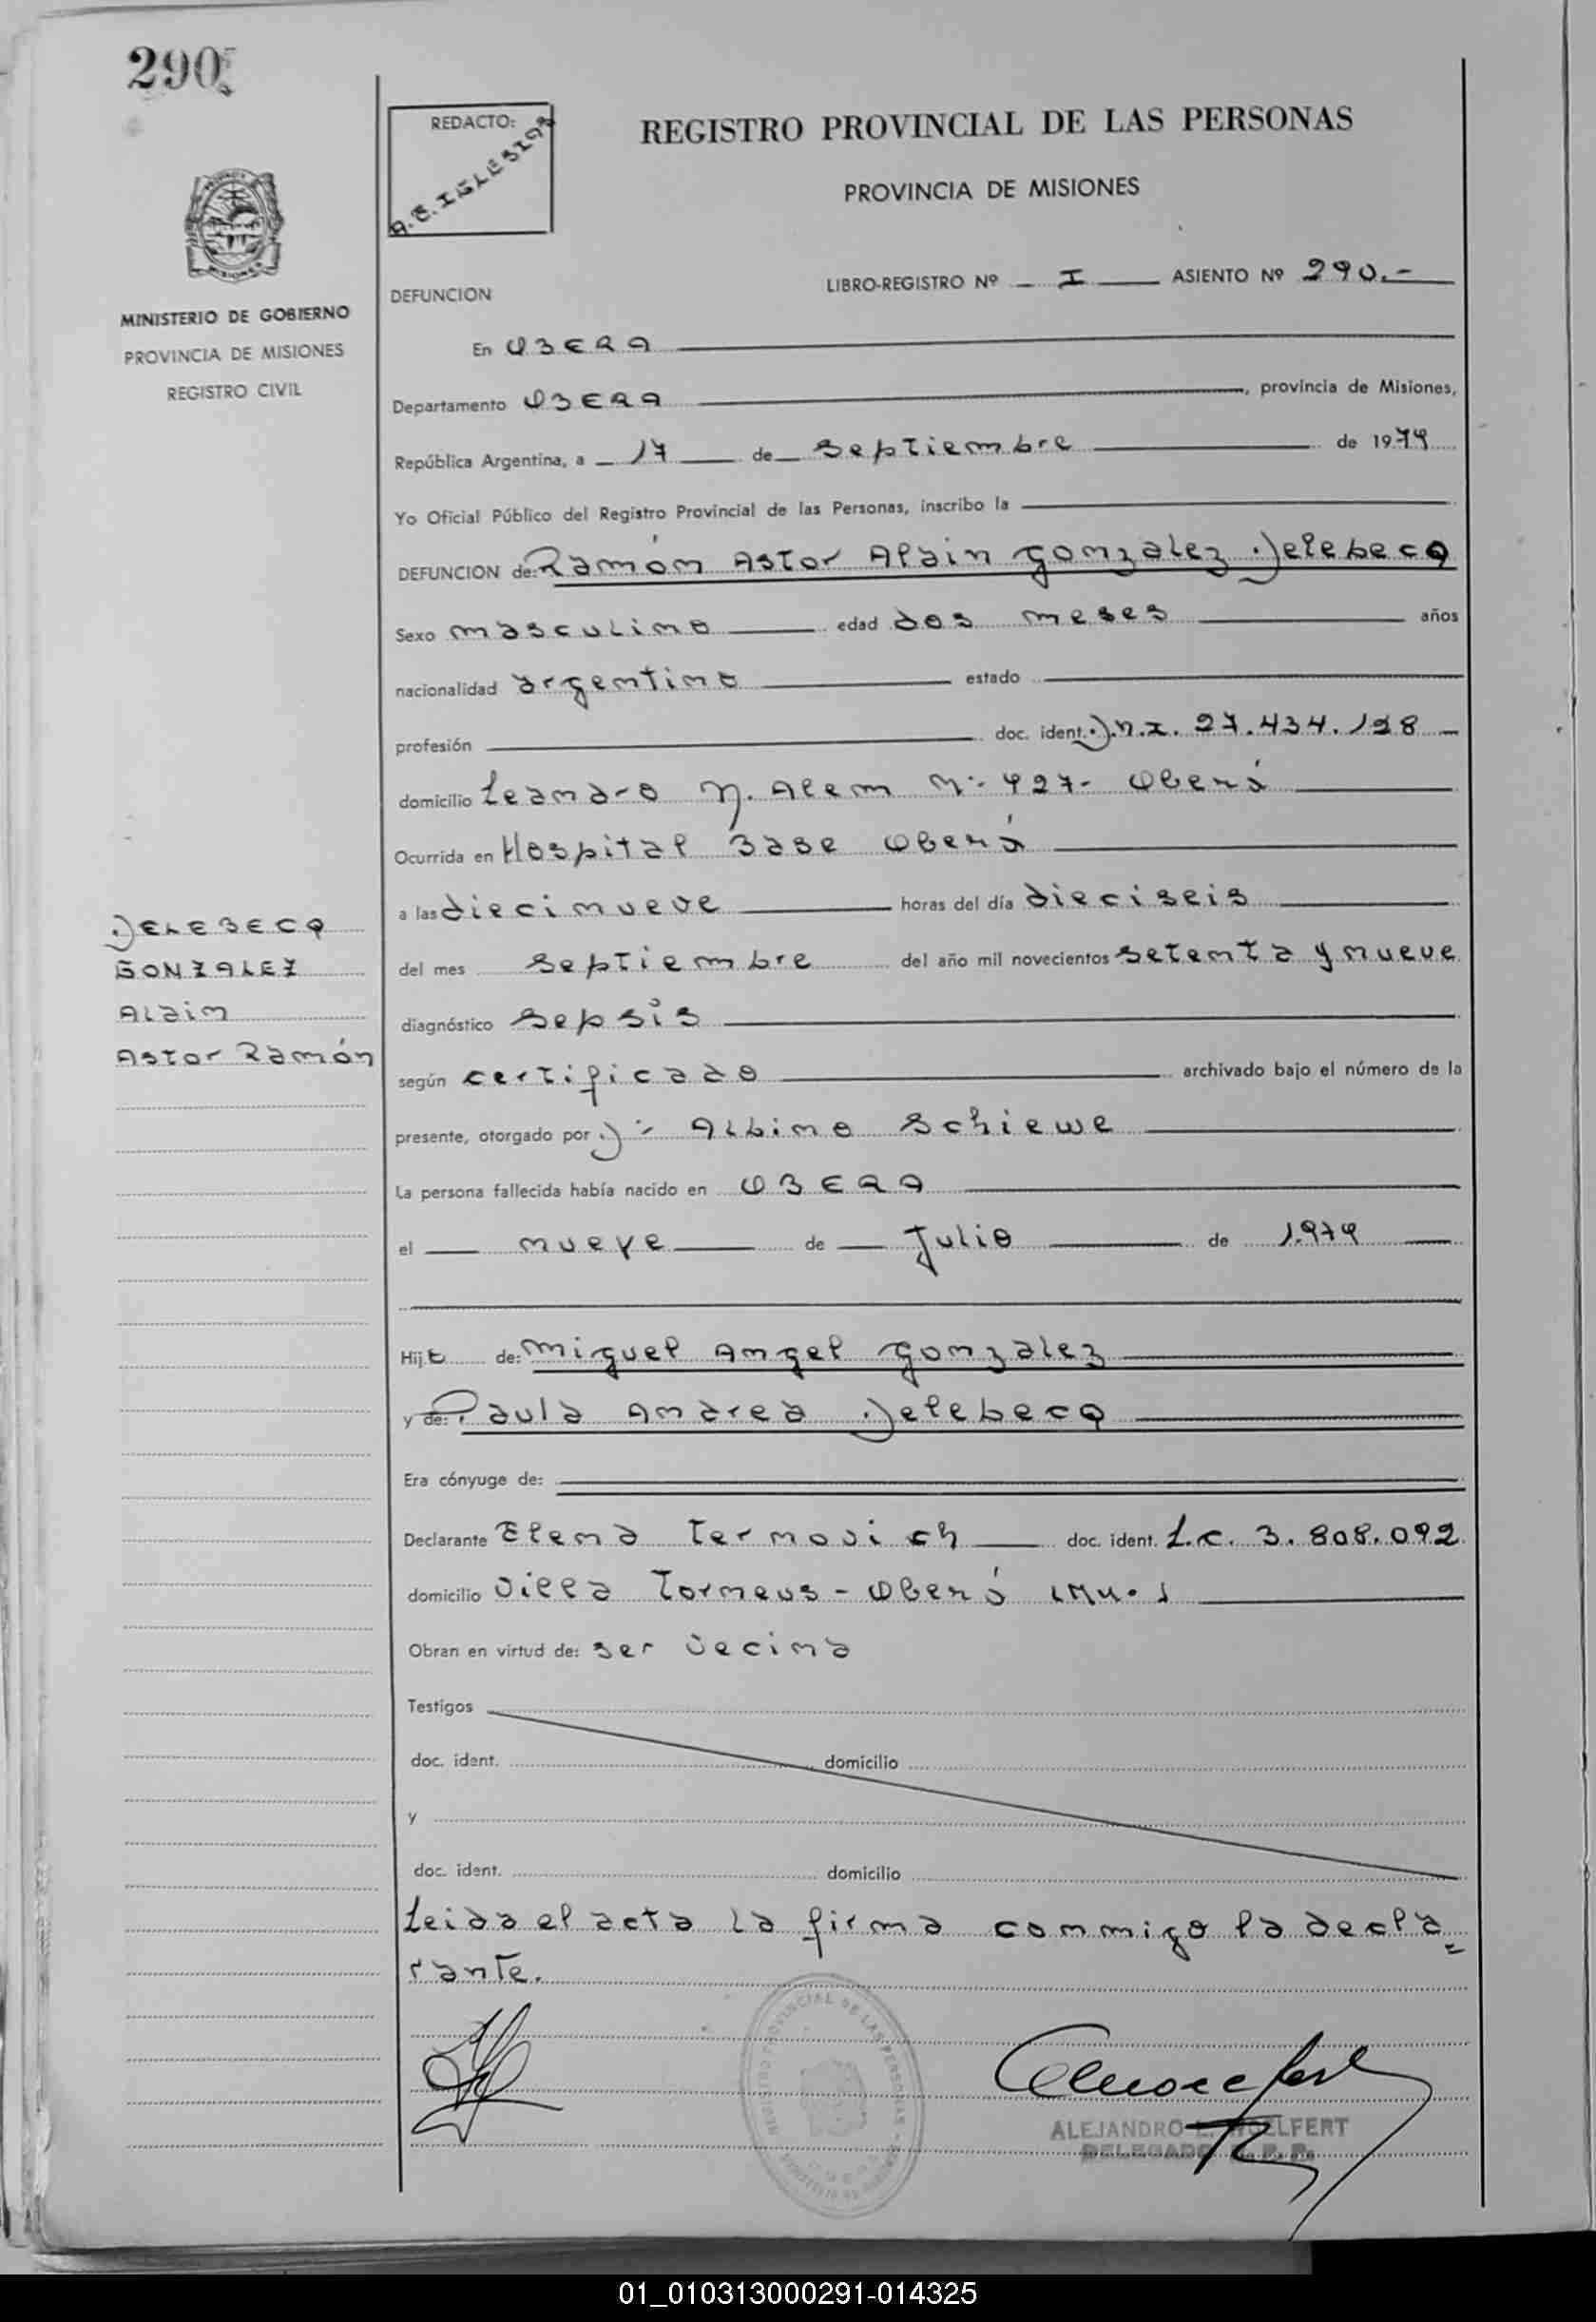 290
REDACTO:
A. E. IGLESIAS
REGISTRO PROVINCIAL DE LAS PERSONAS
PROVINCIA DE MISIONES
MISIONES
MINISTERIO DE GOBIERNO
PROVINCIA DE MISIONES
REGISTRO CIVIL
LIBRO-REGISTRO Nº I ASIENTO Nº 290.-
DEFUNCION
En OBERA
Departamento OBERA, provincia de Misiones,
República Argentina, a 17 de septiembre de 1979
Yo Oficial Público del Registro Provincial de las Personas, inscribo la
DEFUNCION de: Ramón Astor Alain Gonzalez Delebecq
Sexo masculino edad dos meses años
nacionalidad argentino estado
profesión doc. ident. D.N.I. 27.434.198
domicilio Leandro N. Alem Nº 427- Oberá
Ocurrida en Hospital Base Oberá
a las diecinueve horas del día dieciseis
del mes septiembre del año mil novecientos setenta y nueve
diagnóstico sepsis
según certificado archivado bajo el número de la
presente, otorgado por Dr Albino Schiewe
La persona fallecida había nacido en OBERA
el nueve de Julio de 1.979
Hijo de: Miguel Angel Gonzalez
y de: Paula Andrea Delebecq
Era cónyuge de:
Declarante Elena Ternovich doc. ident. L.C. 3.808.092
domicilio Villa Torneus - Oberá
Obran en virtud de: ser vecina
Testigos
doc. ident. domicilio
y
doc. ident. domicilio
Leida el acta la firma conmigo la decla=
rante.
DELEBECQ
GONZALEZ
Alain
Astor Ramón
REGISTRO PROVINCIAL DE LAS PERSONAS
ALEJANDRO L. WOELFERT
DELEGADO R. P. P.
01_010313000291-014325